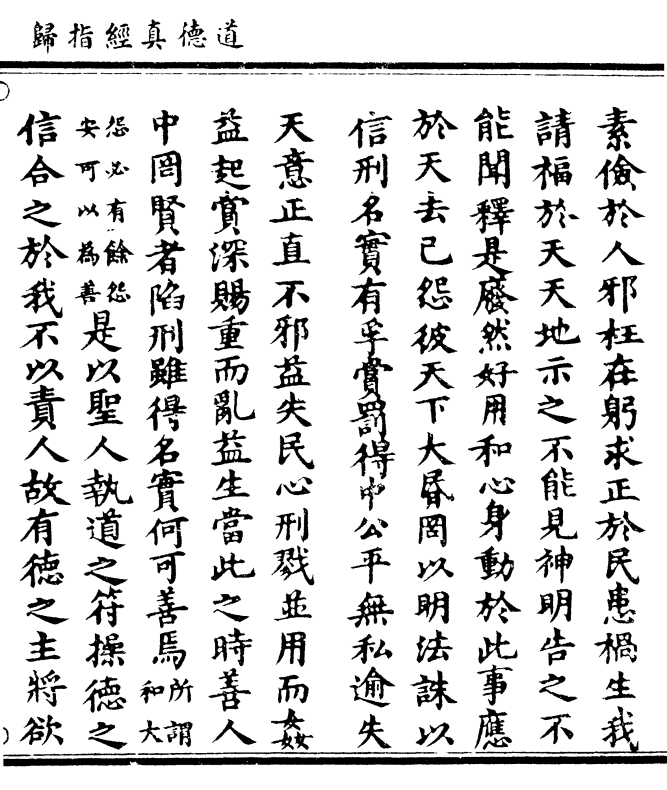 道德真經指歸
素儉於人邪枉在躬求正於民患禍生我
請福於天天地示之不能見神明告之不
能聞釋是廢然好用和心身動於此事應
於天去己怨彼天下大昬罔以明法誅以
信刑名實有孚賞罰得中公平無私逾失
天意正直不邪益失民心刑戮並用而姦
益起賞深賜重而亂益生當此之時善人
中罔賢者陷刑雖得名實何可善焉所謂和大
怨必有餘怨安可以為善是以聖人執道之符操德之
信合之於我不以責人故有德之主將欲